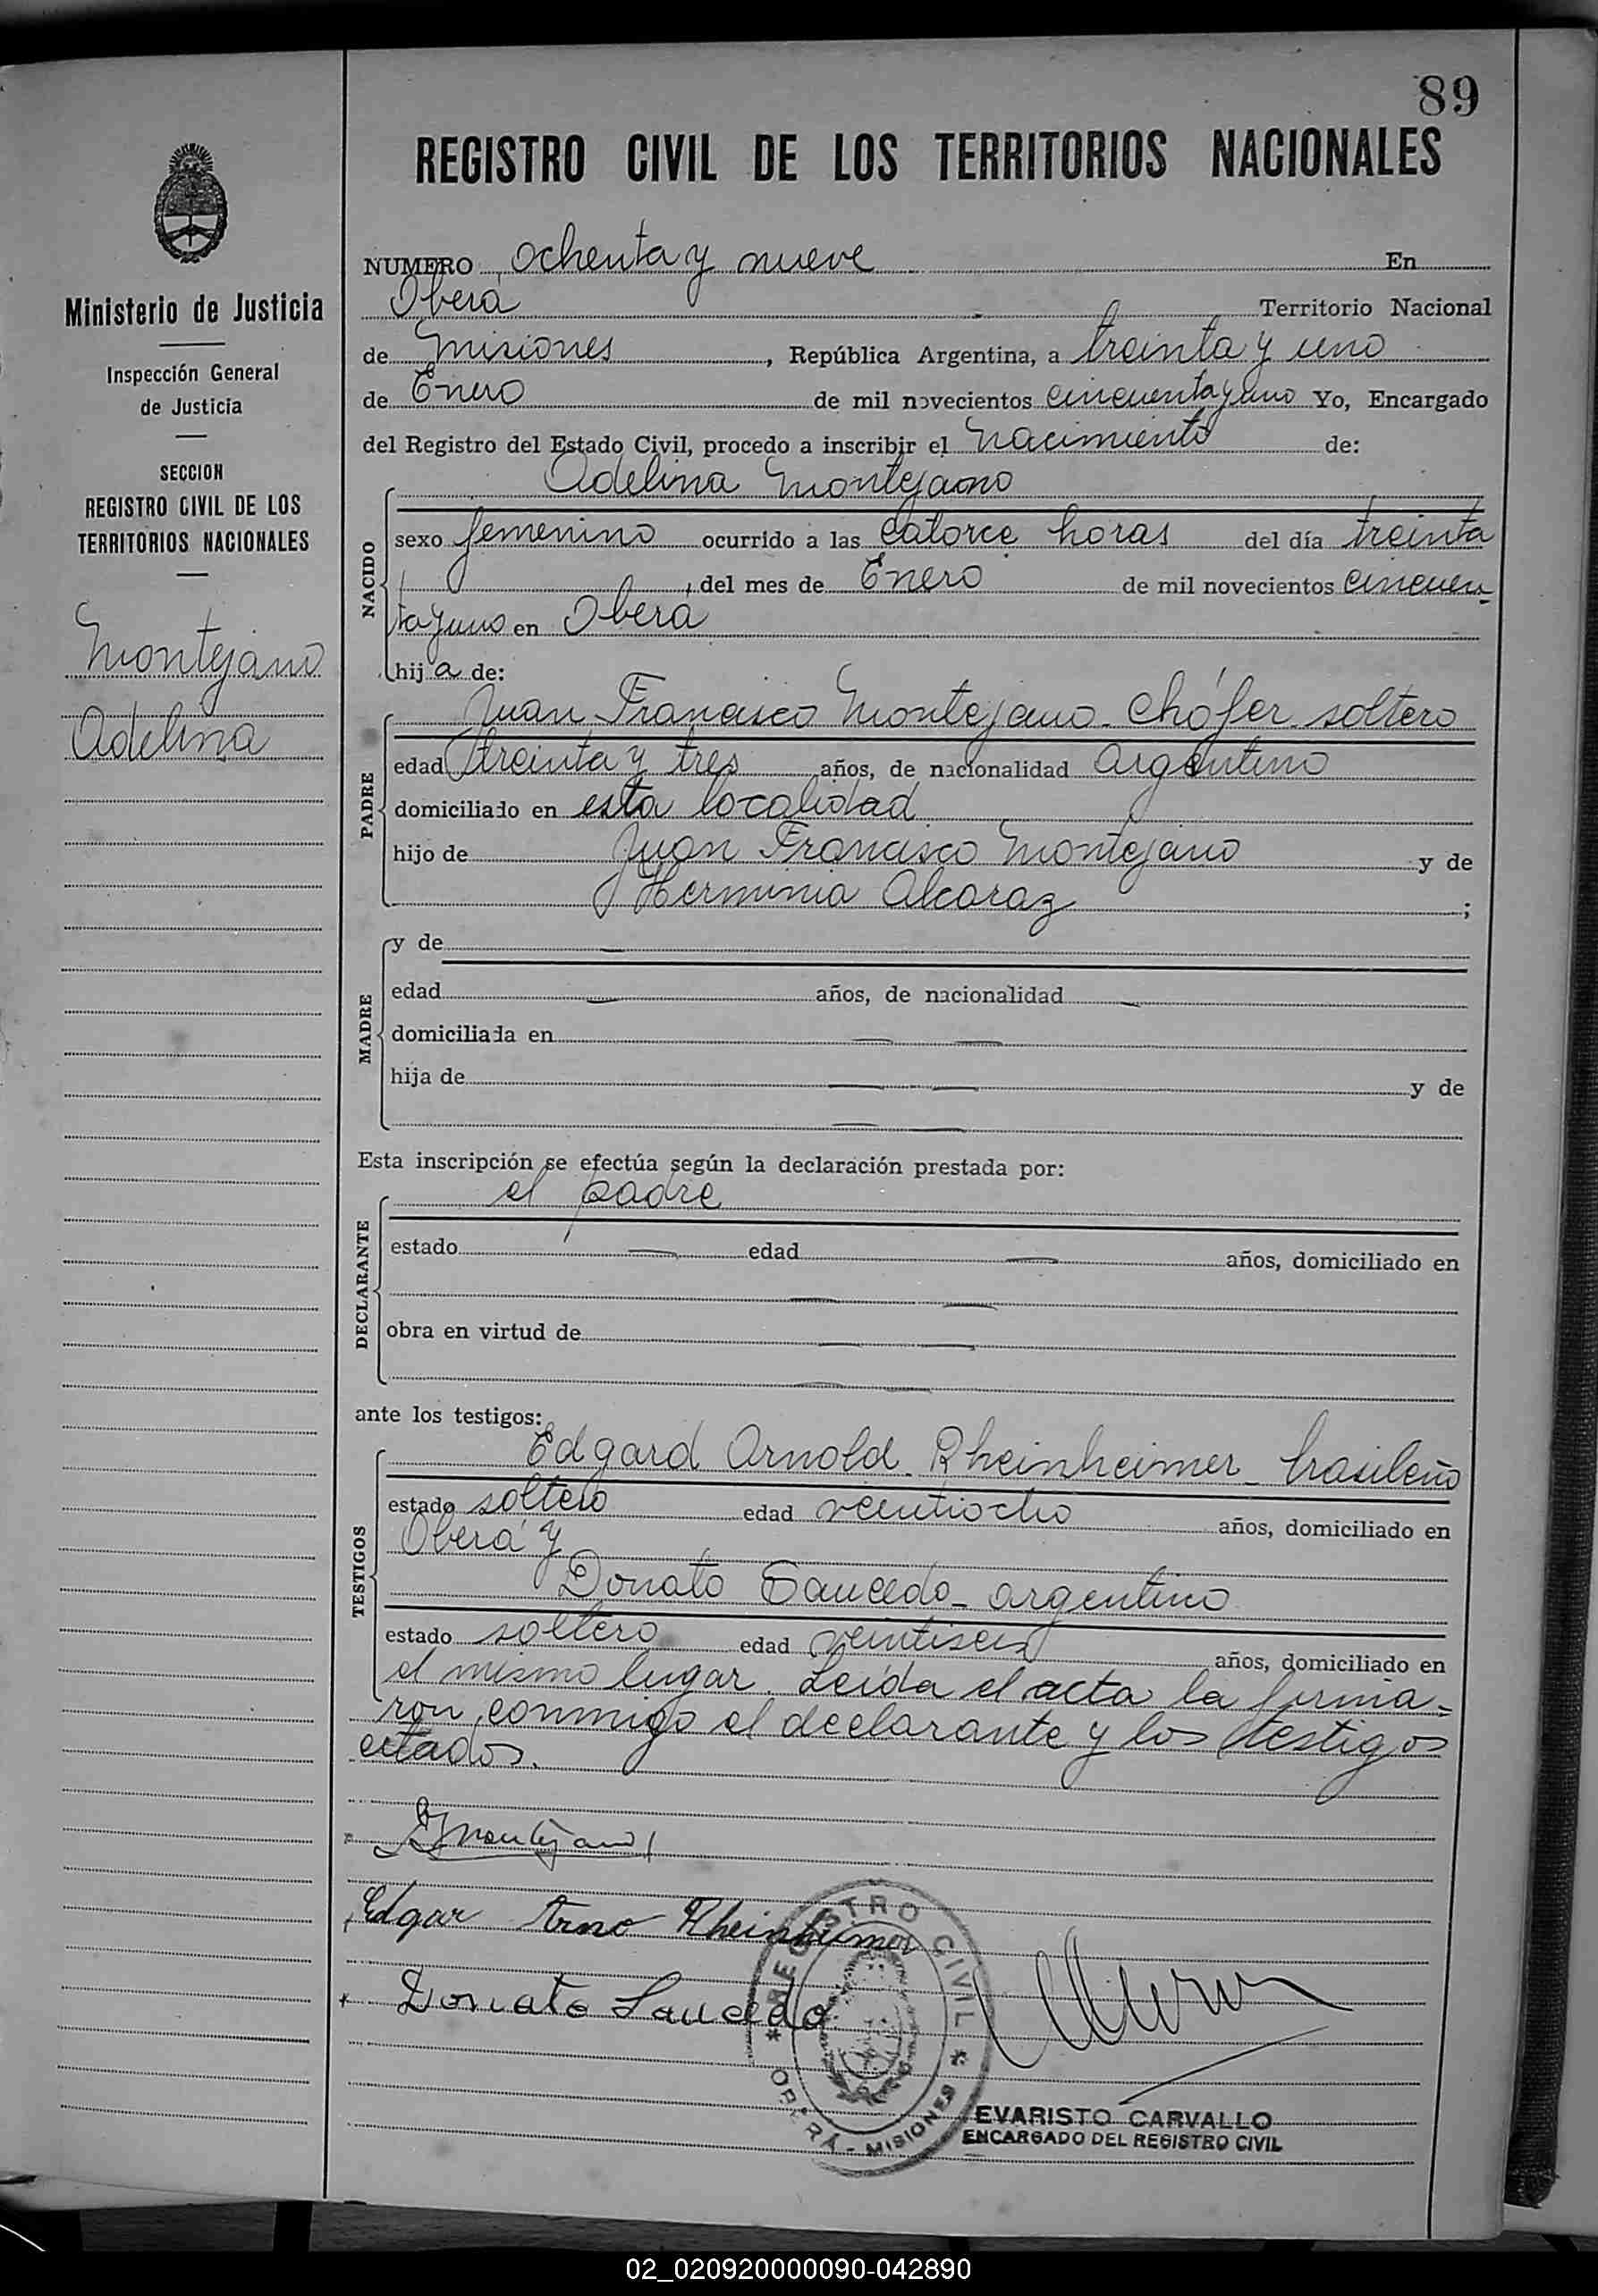 89
REGISTRO CIVIL DE LOS TERRITORIOS NACIONALES
Ministerio de Justicia
Inspección General
de Justicia
SECCION
REGISTRO CIVIL DE LOS
TERRITORIOS NACIONALES
Montejano
Adelina
NUMERO Ochenta y nueve En
Oberá Territorio Nacional
de Misiones, República Argentina, a treinta y uno
de Enero de mil novecientos cincuenta y uno Yo, Encargado
del Registro del Estado Civil, procedo a inscribir el Nacimiento de:
Adelina Montejano
NACIDO
sexo femenino ocurrido a las catorce horas del día treinta
, del mes de Enero de mil novecientos cincuen
ta y uno en Oberá
hija de:
Juan Francisco Montejano - chófer - soltero
PADRE
edad treinta y tres años, de nacionalidad argentino
domiciliado en esta localidad
hijo de Juan Francisco Montejano y de
Herminia Alcaraz ;
MADRE
y de —
edad — años, de nacionalidad —
domiciliada en — —
hija de — — y de
— —
Esta inscripción se efectúa según la declaración prestada por:
el padre
DECLARANTE
estado — edad — años, domiciliado en
— —
obra en virtud de — —
— —
ante los testigos:
Edgard Arnold - Rheinheimer - brasileño
TESTIGOS
estado soltero edad veintiocho años, domiciliado en
Oberá y
Donato Saucedo - argentino
estado soltero edad veintiseis años, domiciliado en
el mismo lugar. Leída el acta la firma-
ron conmigo el declarante y los testigos
citados.
Montejano
Edgar Arno Rheinheimer
Donato Saucedo
REGISTRO CIVIL
* OBERÁ - MISIONES *
EVARISTO CARVALLO
ENCARGADO DEL REGISTRO CIVIL
02_020920000090-042890